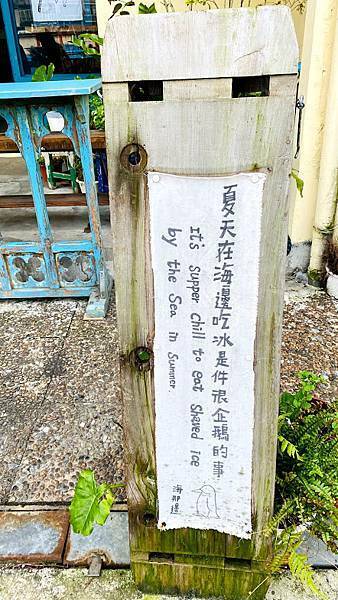 夏天在海邊吃冰是件很企鵝的事
It's supper chill to eat shaved ice
by the Sea in Summer.
海那邊